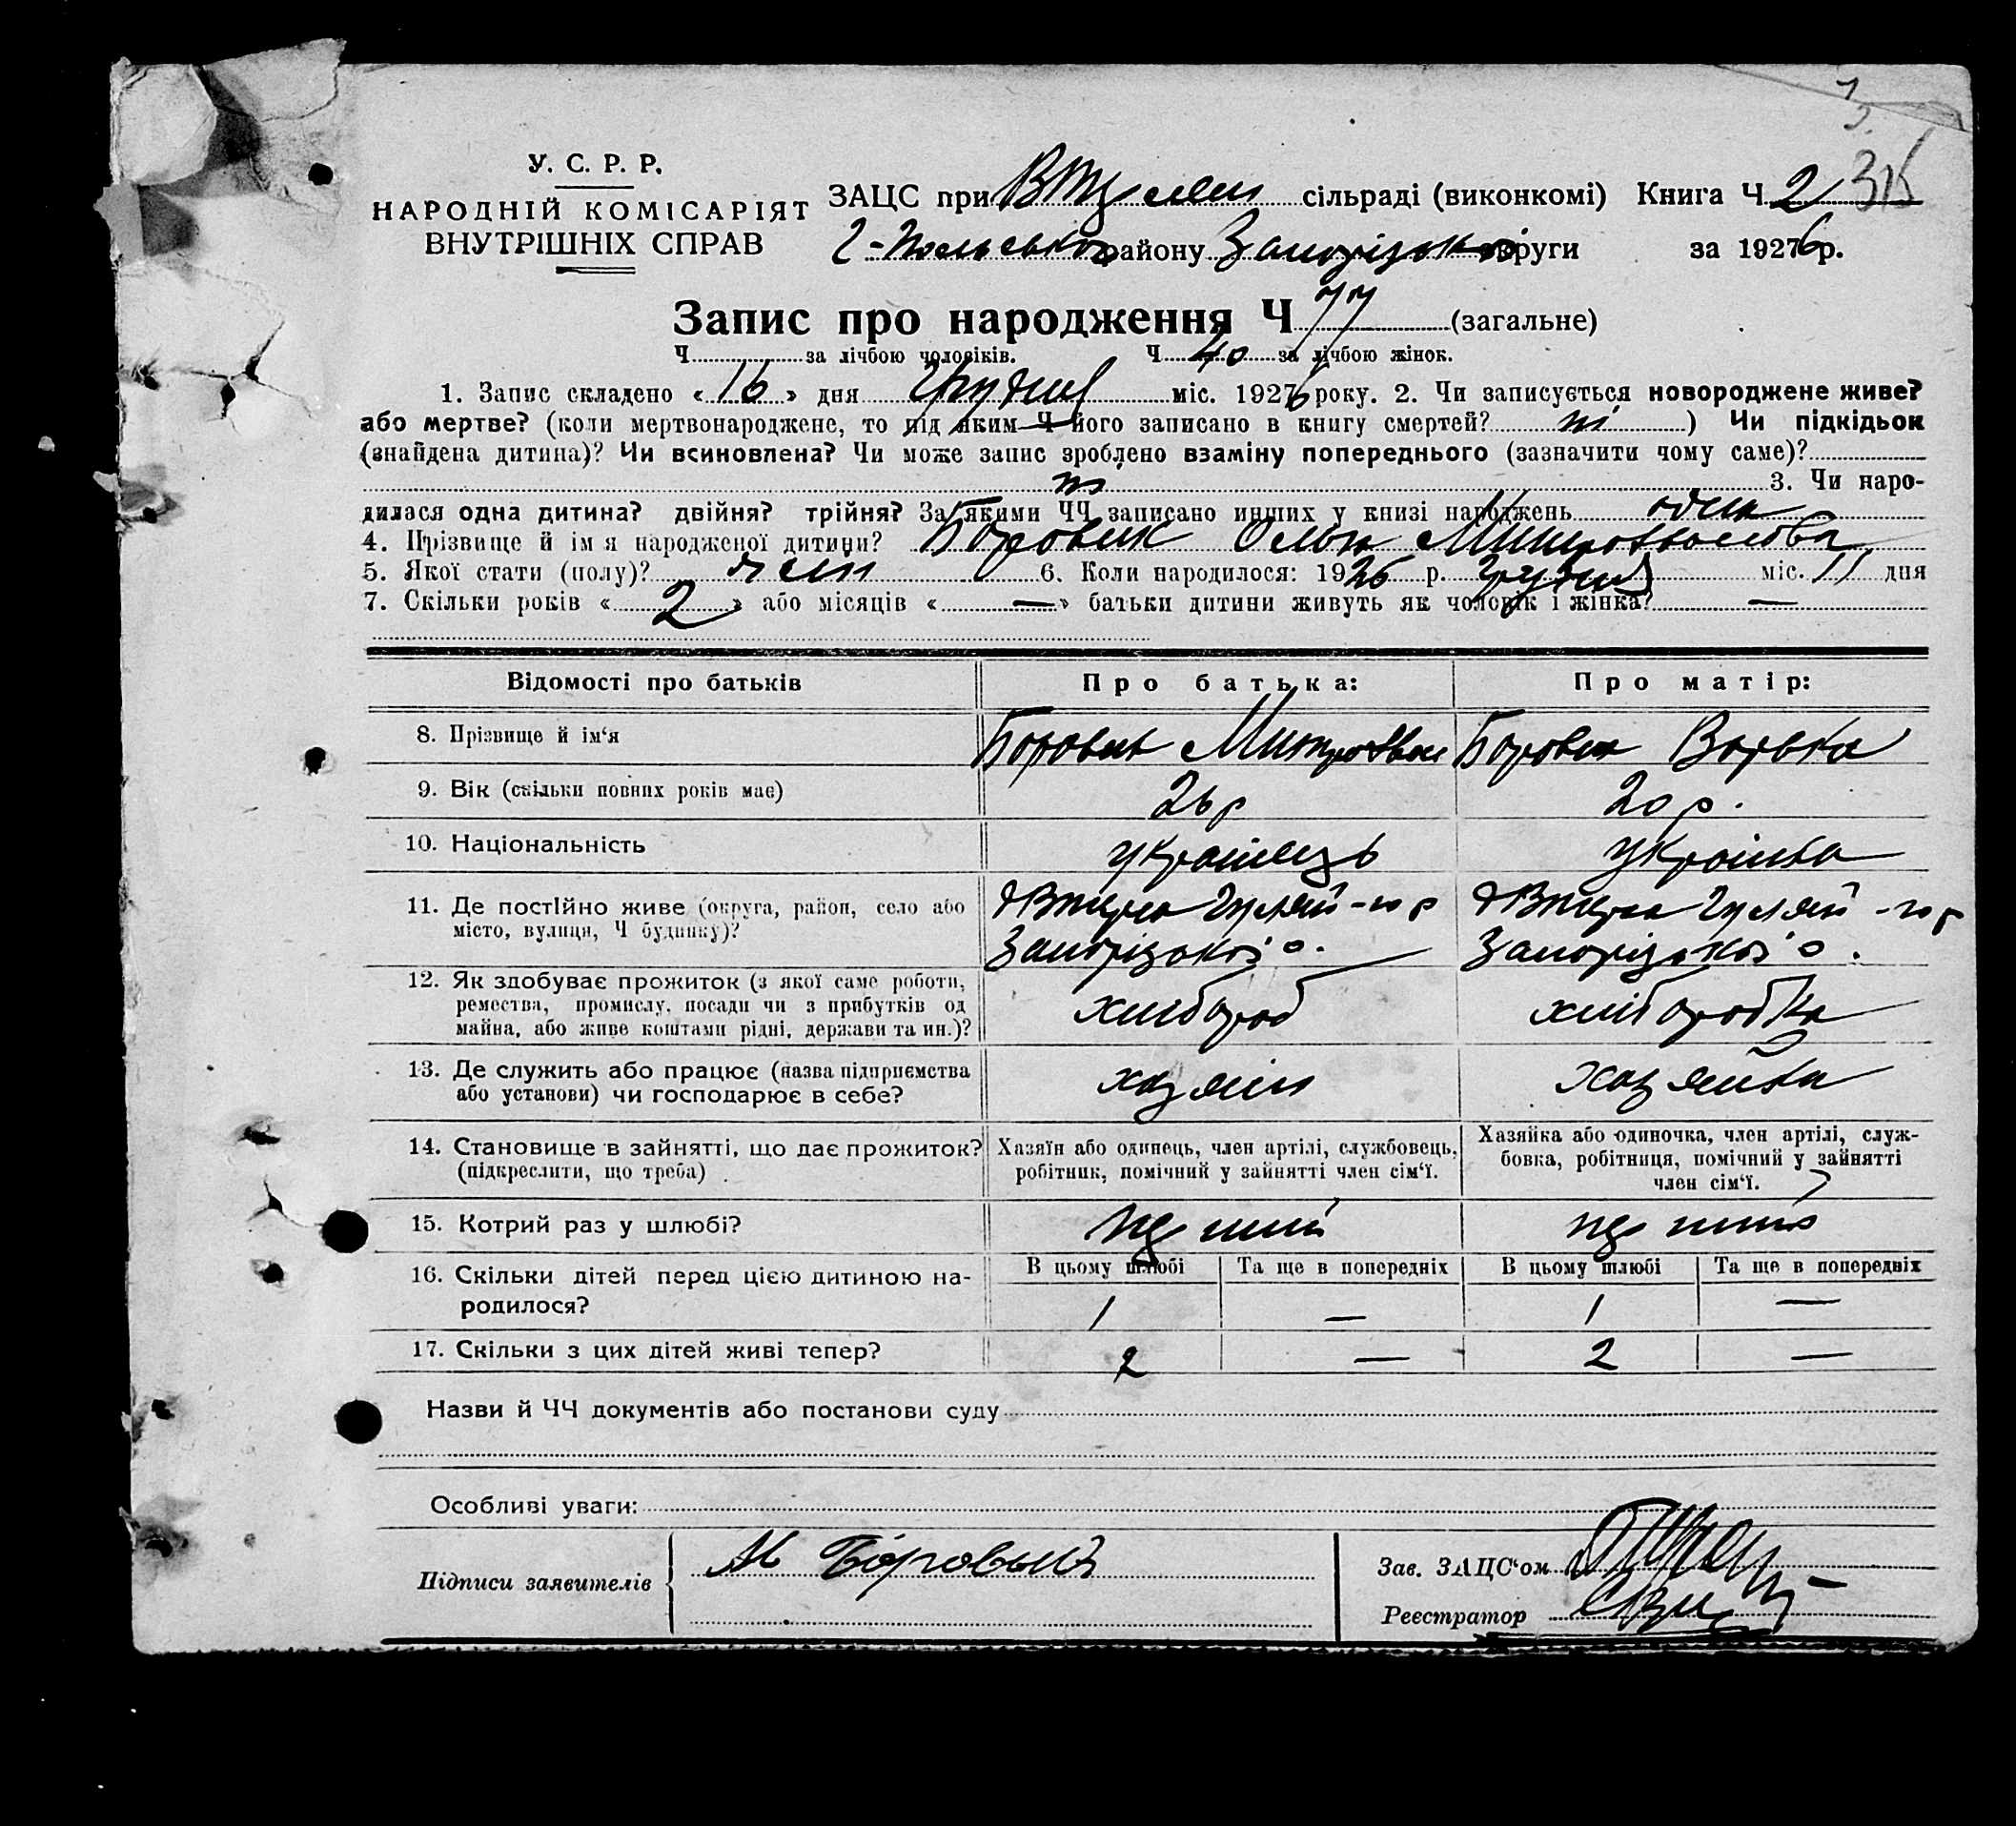 У. С. Р. Р.
НАРОДНІЙ КОМІСАРІЯТ
ВНУТРІШНІХ СПРАВ
ЗАЦС при сільраді (виконкомі) Книга Ч. 2 315
Г-Польсько району Запорізької округи за 1926 р.
Запис про народження Ч. 77 (загальне)
Ч. за лічбою чоловіків. Ч. 40 за лічбою жінок.
1. Запис складено « 16 » дня Грудня міс. 1926 року. 2. Чи записується новороджене живе?
або мертве? (коли мертвонароджене, то під яким Ч його записано в книгу смертей? ні ) Чи підкідьок
(знайдена дитина)? Чи всиновлена? Чи може запис зроблено взаміну попереднього (зазначити чому саме)?
ні 3. Чи наро-
дилася одна дитина? двійня? трійня? За якими ЧЧ записано инших у книзі народжень одна
4. Прізвище й ім'я народженої дитини? Боровик Ольга Митрофанова
5. Якої стати (полу)? жін 6. Коли народилося: 1926 р. Грудня міс. 11 дня
7. Скільки років « 2 » або місяців « — » батьки дитини живуть як чоловік і жінка? —
Відомості про батьків Про батька: Про матір:
8. Прізвище й ім'я Боровик Митрофан Боровик Варька
9. Вік (скільки повних років має) 26 р 20 р.
10. Національність українець українка
11. Де постійно живе (округа, район, село або
місто, вулиця, Ч будинку)? Гуляй-го р Гуляй-го р
Запорізької о. Запорізької о.
12. Як здобуває прожиток (з якої саме роботи,
ремества, промислу, посади чи з прибутків од
майна, або живе коштами рідні, держави та ин.)? хлібороб хліборобка
13. Де служить або працює (назва підприємства
або установи) чи господарює в себе? хазяїн хазяйка
14. Становище в зайнятті, що дає прожиток?
(підкреслити, що треба)
Хазяїн або одинець, член артілі, службовець,
робітник, помічний у зайнятті член сім'ї.
Хазяйка або одиночка, член артілі, служ-
бовка, робітниця, помічний у зайнятті
член сім'ї.
15. Котрий раз у шлюбі? перший перший
16. Скільки дітей перед цією дитиною на-
родилося?
В цьому шлюбі Та ще в попередніх В цьому шлюбі Та ще в попередніх
1 — 1 —
17. Скільки з цих дітей живі тепер? 2 — 2 —
Назви й ЧЧ документів або постанови суду
Особливі уваги:
Підписи заявителів М Боровык
Зав. ЗАЦС'ом
Реєстратор